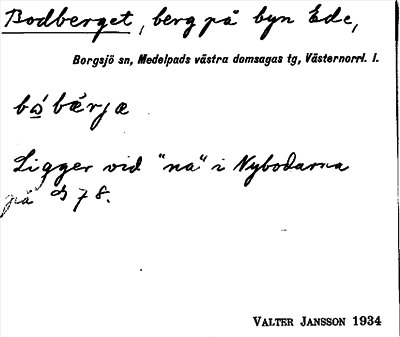 Bodberget, berg på byn Ede,
Borgsjö sn, Medelpads västra domsagas tg, Västernorrl. l.
bɷ́ bæ̀rjæ
Ligger vid "na" i Nybodarna
på 78.
VALTER JANSSON 1934